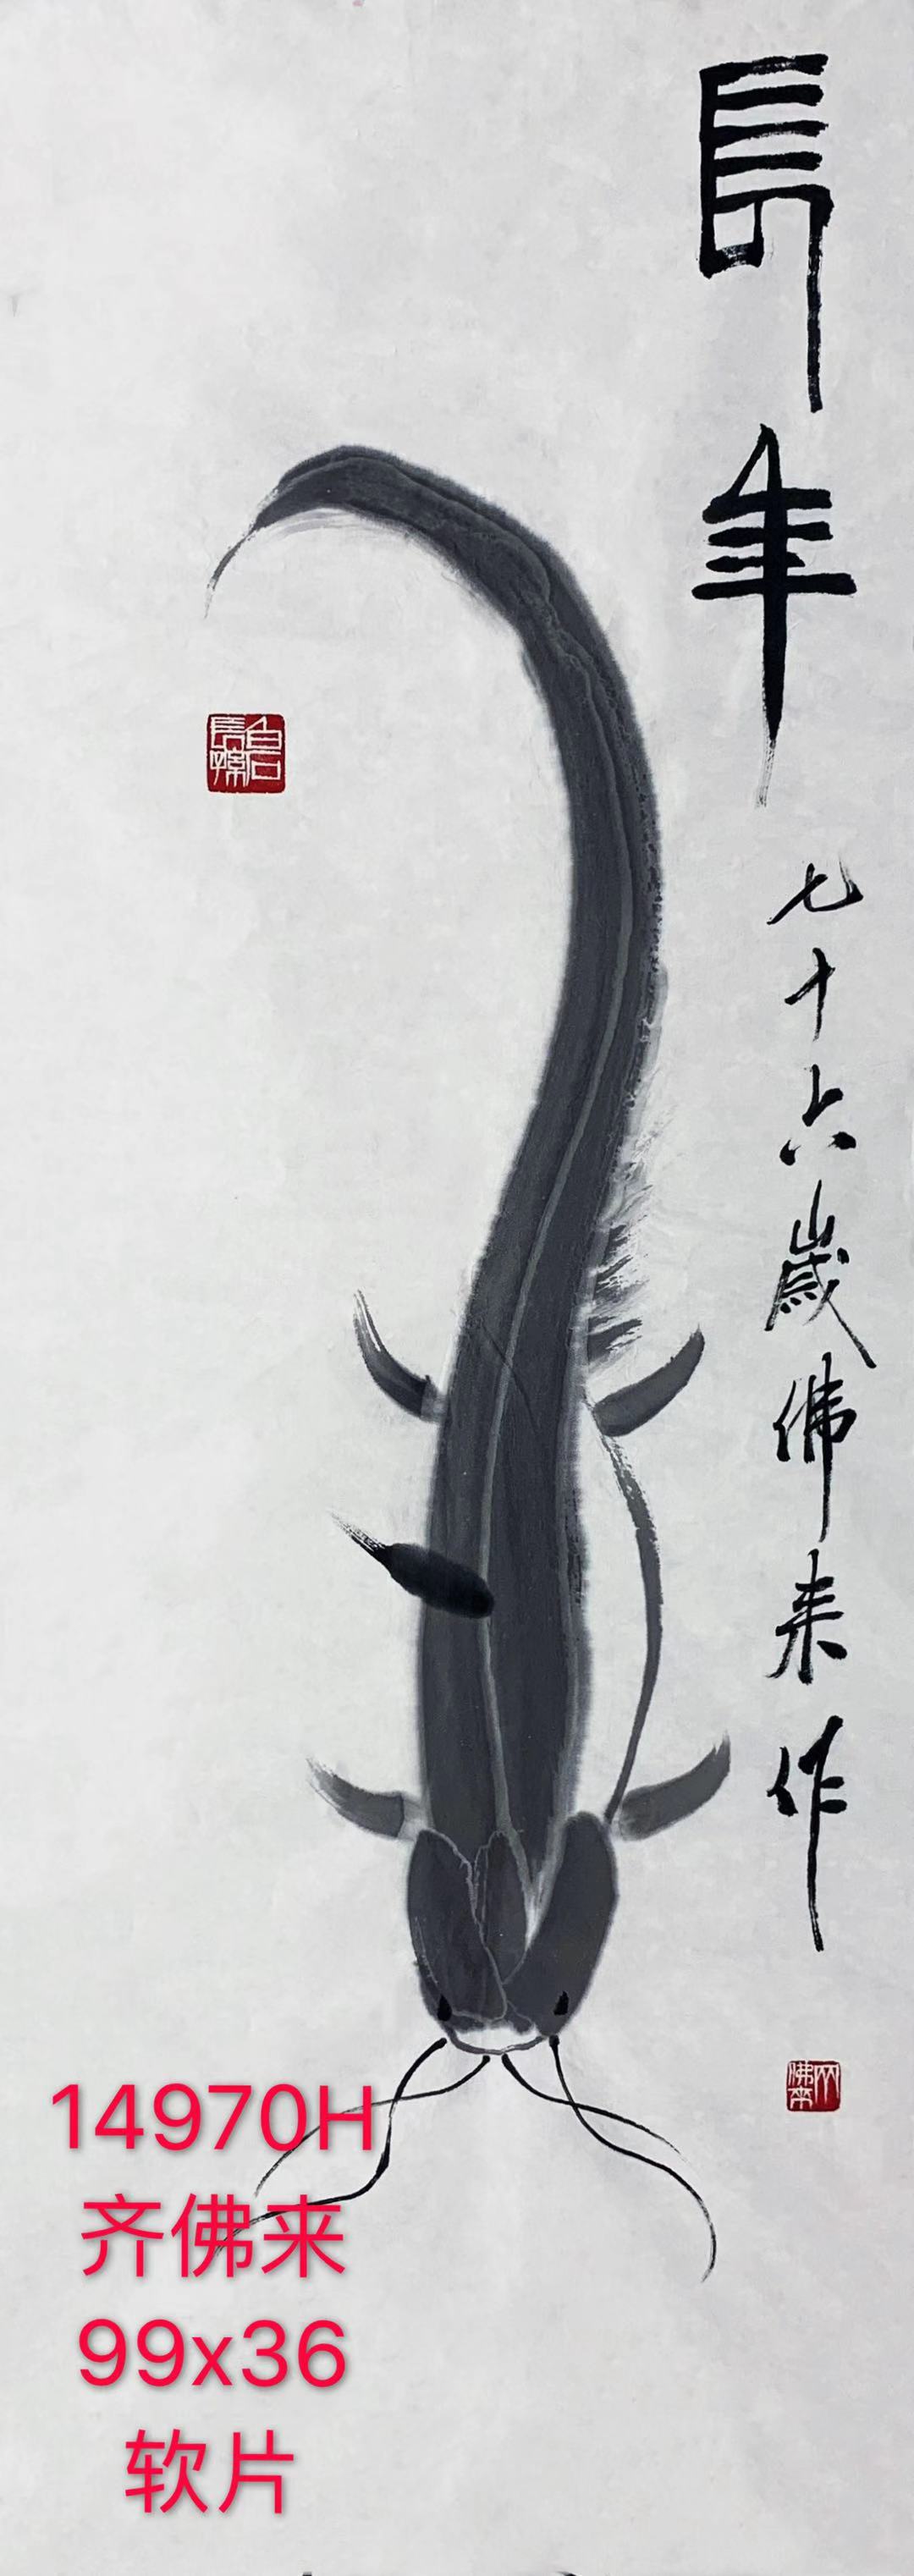 長年
七十六歲佛来作
白石長孫
佛来
14970H
齐佛来
99x36
软片